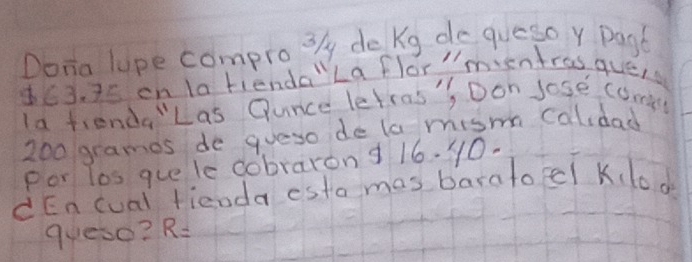 Doña lupe compro 3/4 de Kg de queso y pagó
$63.75 en la tienda "La flor" mientras que, en
la tienda "Las Quince letras", Don José compró
200 gramos de queso de la misma calidad
por los que le cobraron $ 16.40.
¿En cual tienda esta mas barato el Kilo de
queso? R=